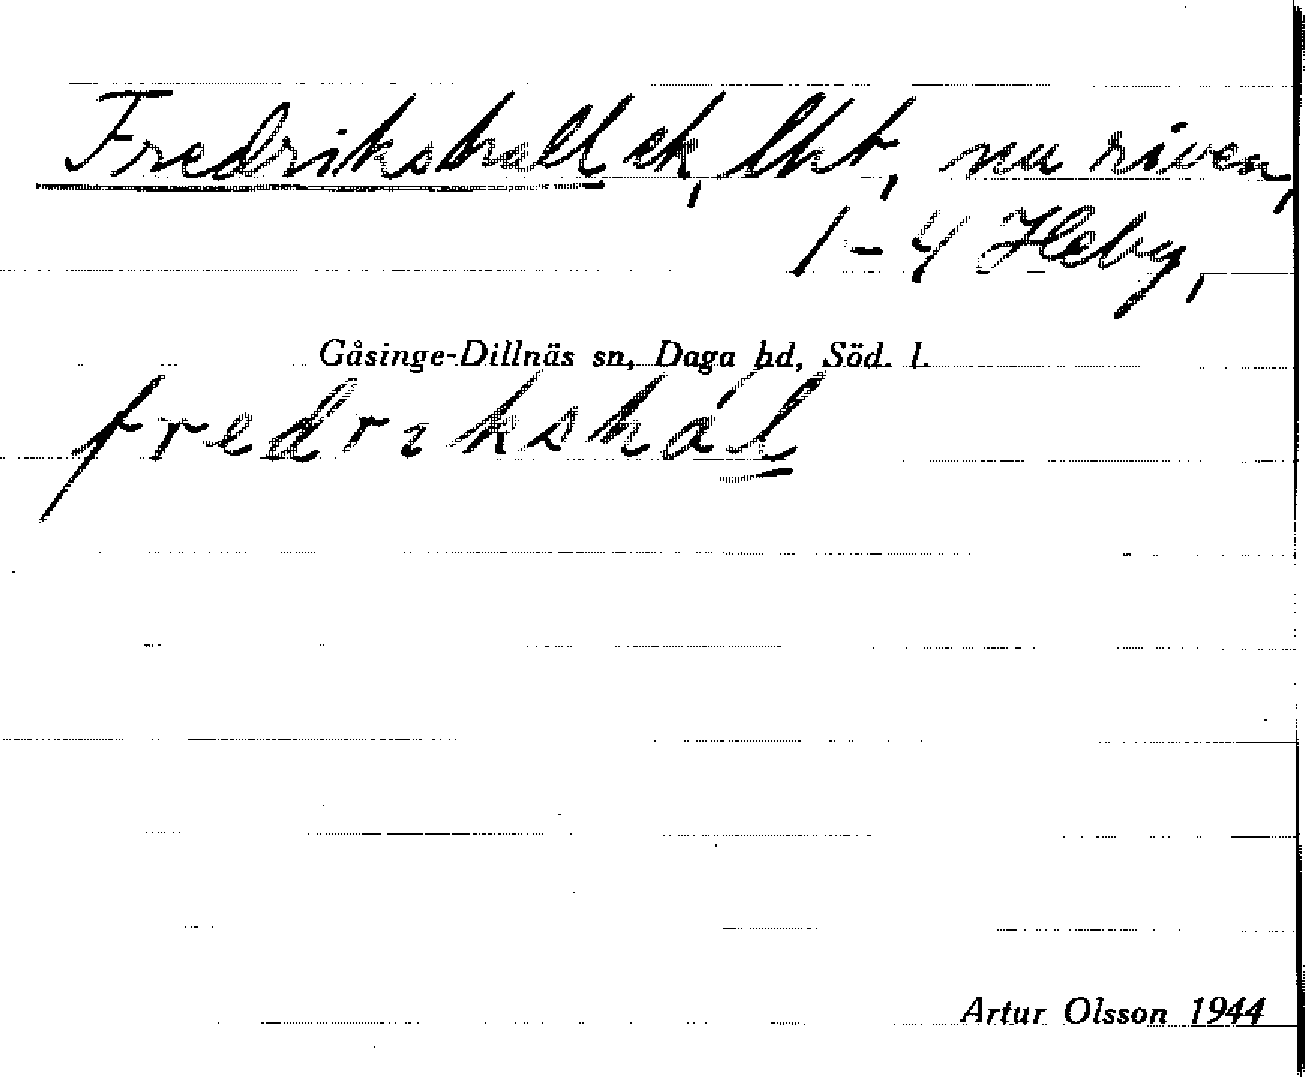 Fredrikshall ek, lht, nu riven,
1-4 Heby,
Gåsinge-Dillnäs sn, Daga hd, Söd. l.
fredrikshál
Artur Olsson 1944